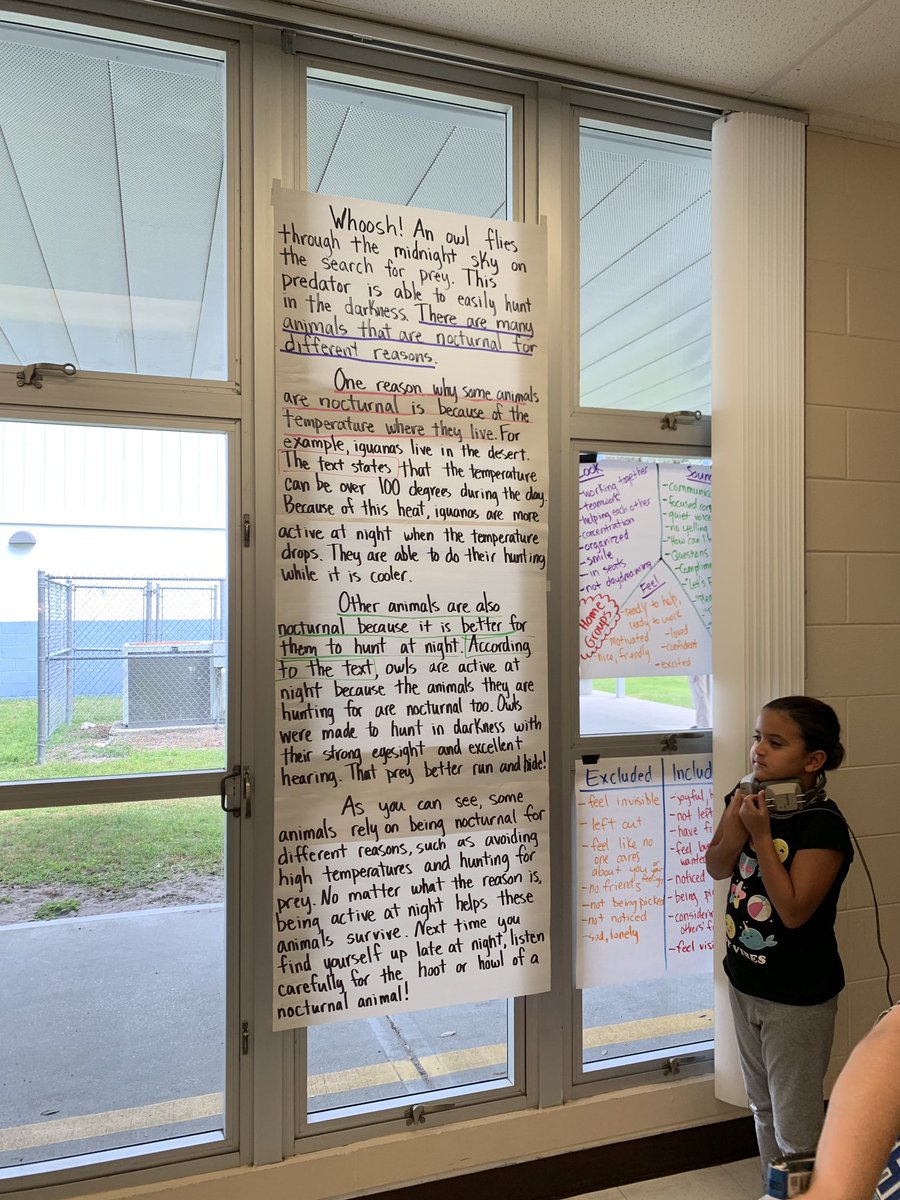 Whoosh! An owl flies
through the midnight sky on
the search for prey. This
predator is able to easily hunt
in the darkness. There are many
animals that are nocturnal for
different reasons.
One reason why some animals
are nocturnal is because of the
temperature where they live. For
example, iguanas live in the desert.
The text states that the temperature
can be over 100 degrees during the day.
Because of this heat, iguanas are more
active at night when the temperature
drops. They are able to do their hunting
while it is cooler.
Other animals are also
nocturnal because it is better for
them to hunt at night. According
to the text, owls are active at
night because the animals they are
hunting for are nocturnal too. Owls
were made to hunt in darkness with
their strong eyesight and excellent
hearing. That prey better run and hide!
As you can see, some
animals rely on being nocturnal for
different reasons, such as avoiding
high temperatures and hunting for
prey. No matter what the reason is,
being active at night helps these
animals survive. Next time you
find yourself up late at night, listen
carefully for the hoot or howl of a
nocturnal animal!
- working together
- teamwork
- helping each other
- concentration
- organized
- smile
- in seats
- not daydreaming
- focused
- quiet
- no yelling
- "How can I
- Questions
- "Let's
Feel
Home
Groups
- ready to help,
ready to work
- motivated
- nice, friendly
- loved
- confident
- excited
Excluded
- feel invisible
- left out
- feel like no
one cares
about you or
feelings
- no friends
- not being picked
- not noticed
- sad, lonely
- joyful,
- not left
- have
- feel
- noticed
- being
- feel
VIBES